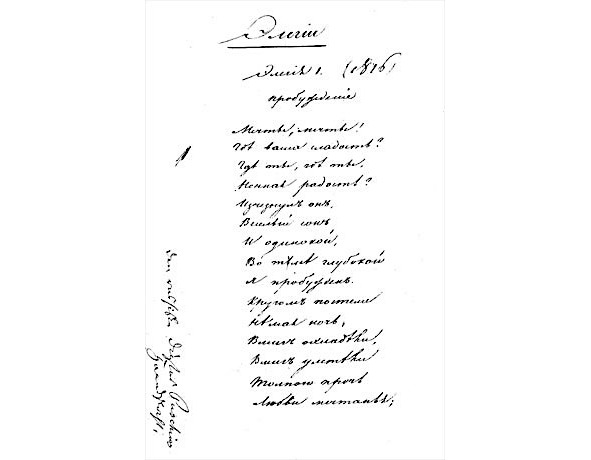 Элегіи
Элегія 1. (1816)
пробужденіе
Мечты, мечты!
Гдѣ ваша сладость?
Гдѣ ты, гдѣ ты,
Ночная радость?
Изчезнулъ онъ,
Веселый сонъ
И одинокой,
Во тьмѣ глубокой
Я пробужденъ.
Кругомъ постели
Нѣмая ночь,
Вмигъ охладѣли,
Вмигъ улетѣли
Толпою прочь
Любви мечтанья;
den russiske Digter Puschkins
Haandskrift.